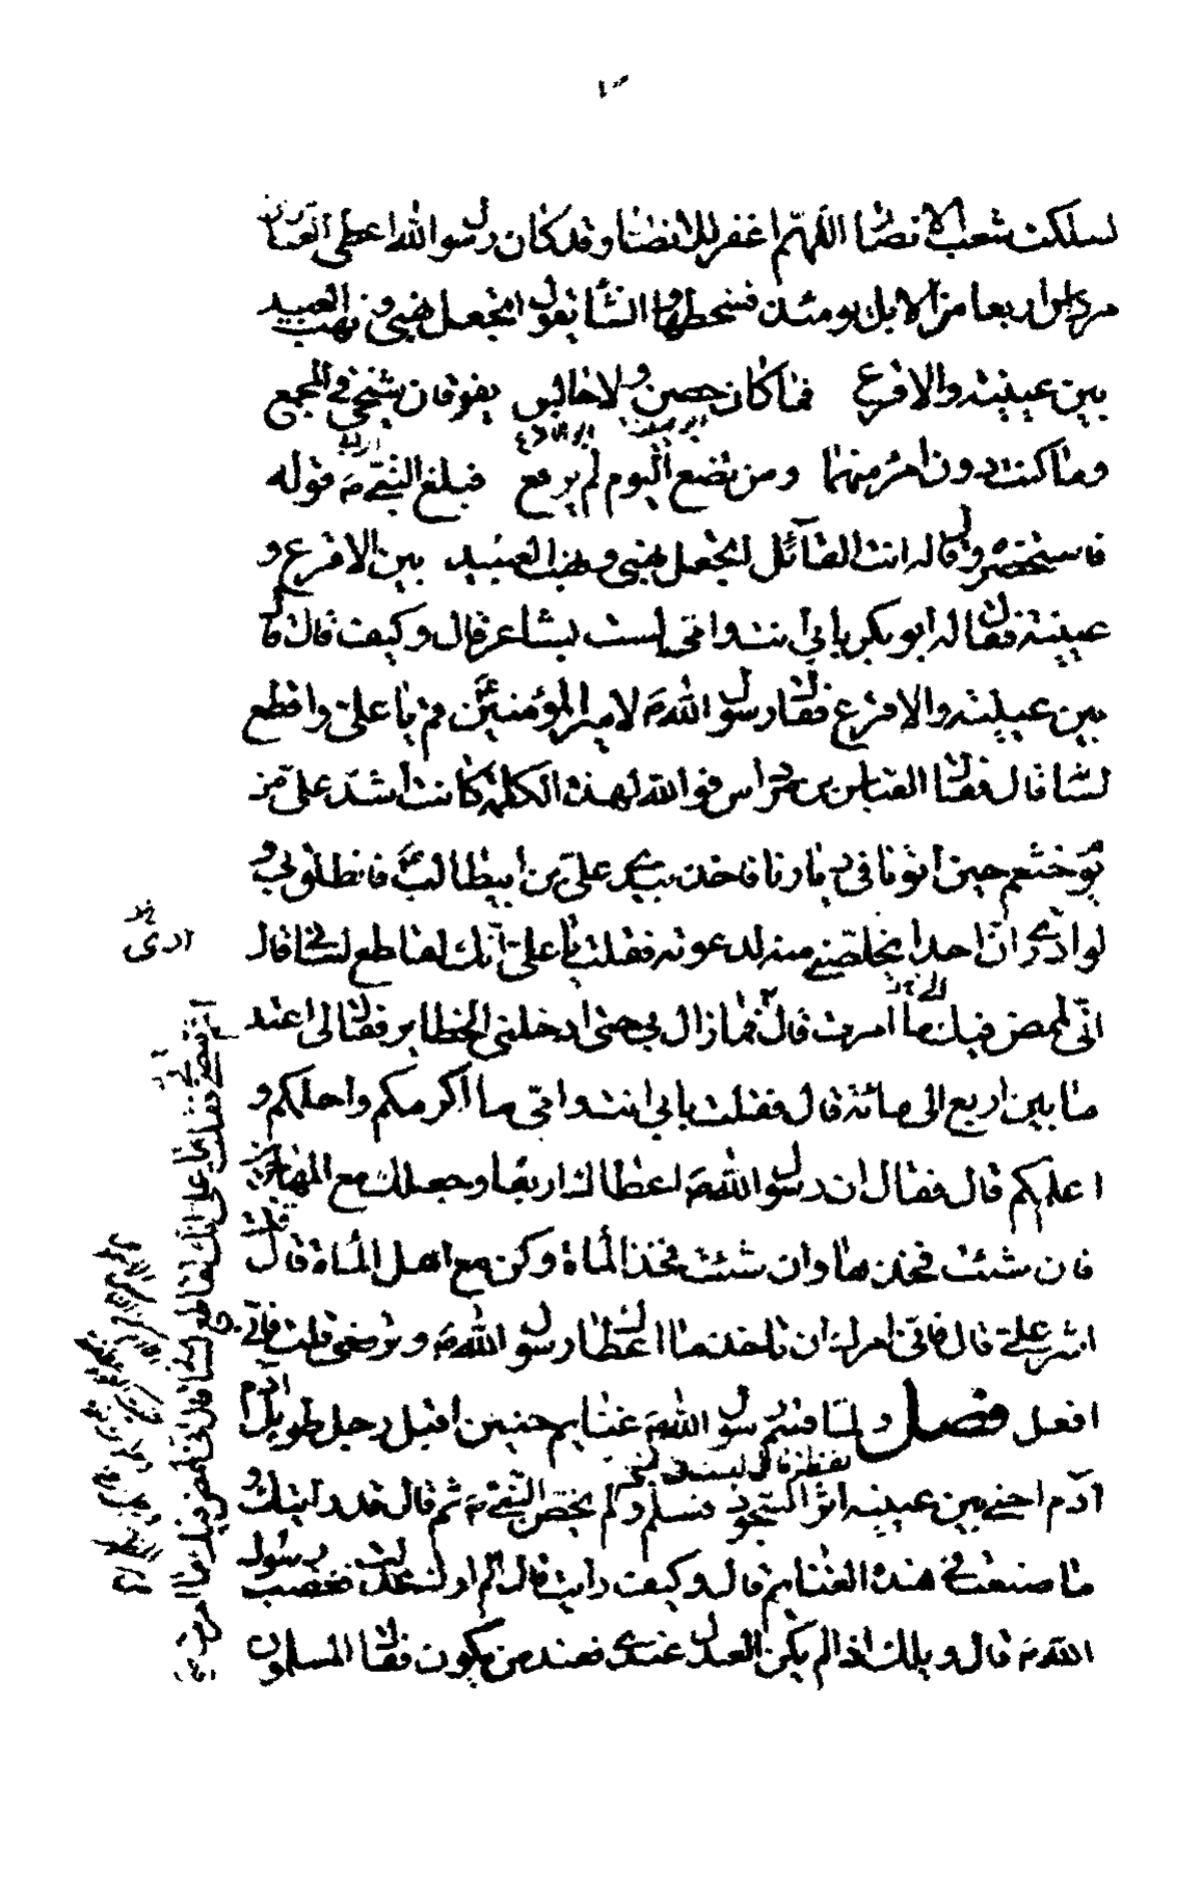 لسلكت شعب الانصار اللهم اغفر للانصار وقد كان رسول الله اعطى العباس بن
مرداس اربعا من الابل يومئذ فسخطها وانشأ يقول اتجعل نهبي ونهب العبيد
بين عيينة والاقرع فما كان حصن ولا حابس يفوقان شيخي في المجمع
وما كنت دون امرء منهما ومن تضع اليوم لم يرفع فبلغ النبي ص قوله
فاستحضره وقال له انت القائل اتجعل نهبي ونهب العبيد بين الاقرع و
عيينة فقال له ابو بكر بابي انت وامي لست بشاعر قال وكيف قال قال
بين عيينة والاقرع فقال رسول الله ص لامير المؤمنين ع قم يا علي واقطع
لسانه قال فقال العباس بن مرداس فوالله لهذه الكلمة كانت اشد علي من
يوم خثعم حين اتونا في ديارنا فاخذ بيدي علي بن ابيطالب ع فانطلق بي و
لو ادرى ان احدا يخلصني منه لدعوته فقلت يا علي انك لقاطع لساني قال
اني لممض فيك ما امرت قال ثم فما زال بي حتى ادخلني الحظاير فقال لي اعتد
ما بين اربع الى مائة قال فقلت بابي انت وامي ما اكرمكم واحلمكم و
اعلمكم قال فقال ان رسول الله ص اعطاك اربعا وجعلك مع المهاجرين
فان شئت فخذها وان شئت فخذ المأة وكن مع اهل المأة قال قلت
اشر علي قال فاني امرك ان تاخذ ما اعطاك رسول الله ص وترضى قلت فاني
افعل فصل ولما قسم رسول الله ص غنايم حنين اقبل رجل طويل آدم
آدم احنى بين عينيه اثر السجود فسلم ولم يخص النبي ص ثم قال قد رأيتك و
ما صنعت في هذه الغنايم قال وكيف رايت قال لم ارك عدلت فغضب رسول
الله ص قال ويلك اذا لم يكن العدل عندي فعند من يكون فقال المسلمون
ادرى